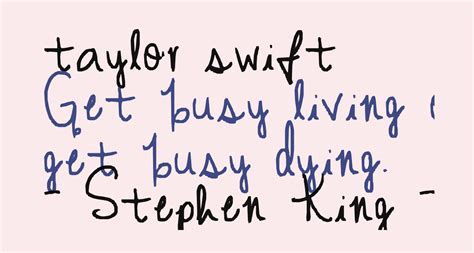 taylor swift
Get busy living
get busy dying.
- Stephen King -